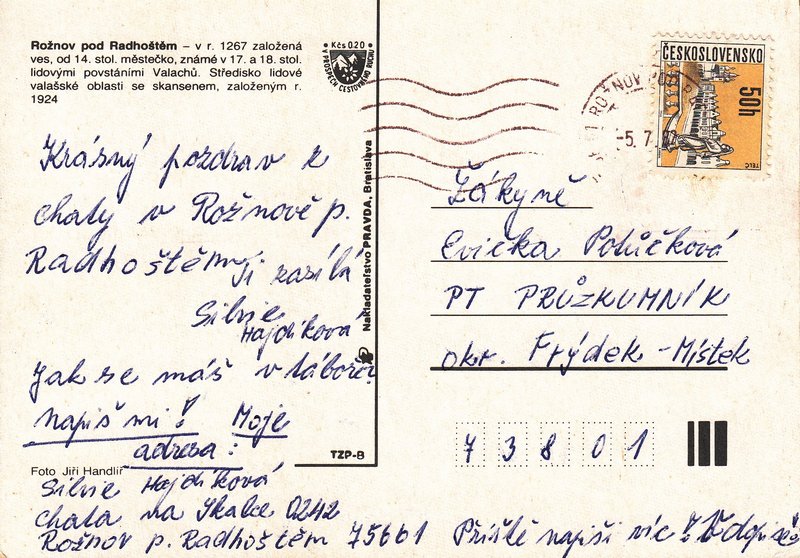 Rožnov pod Radhoštěm – v r. 1267 založená
ves, od 14. stol. městečko, známé v 17. a 18. stol.
lidovými povstáními Valachů. Středisko lidové
valašské oblasti se skansenem, založeným r.
1924
Kčs 0,20
V PROSPĚCH CESTOVNÍHO RUCHU
ČESKOSLOVENSKO
50h
TELČ
ROŽNOV POD
-5.7.
Krásný pozdrav z
chaty v Rožnově p.
Radhoštěm Ti zasílá
Silvie
Hajdíková
Jak se máš v táboře?
napiš mi! Moje
adresa:
Foto Jiří Handlíř
Silvie Hajdíková
chata na Skalce 0242
Rožnov p. Radhoštěm 75661
Příště napiši víc
Nakladatelství PRAVDA, Bratislava
TZP-B
Žákyně
Evička Potůčková
PT PRŮZKUMNÍK
okr. Frýdek-Místek
73801